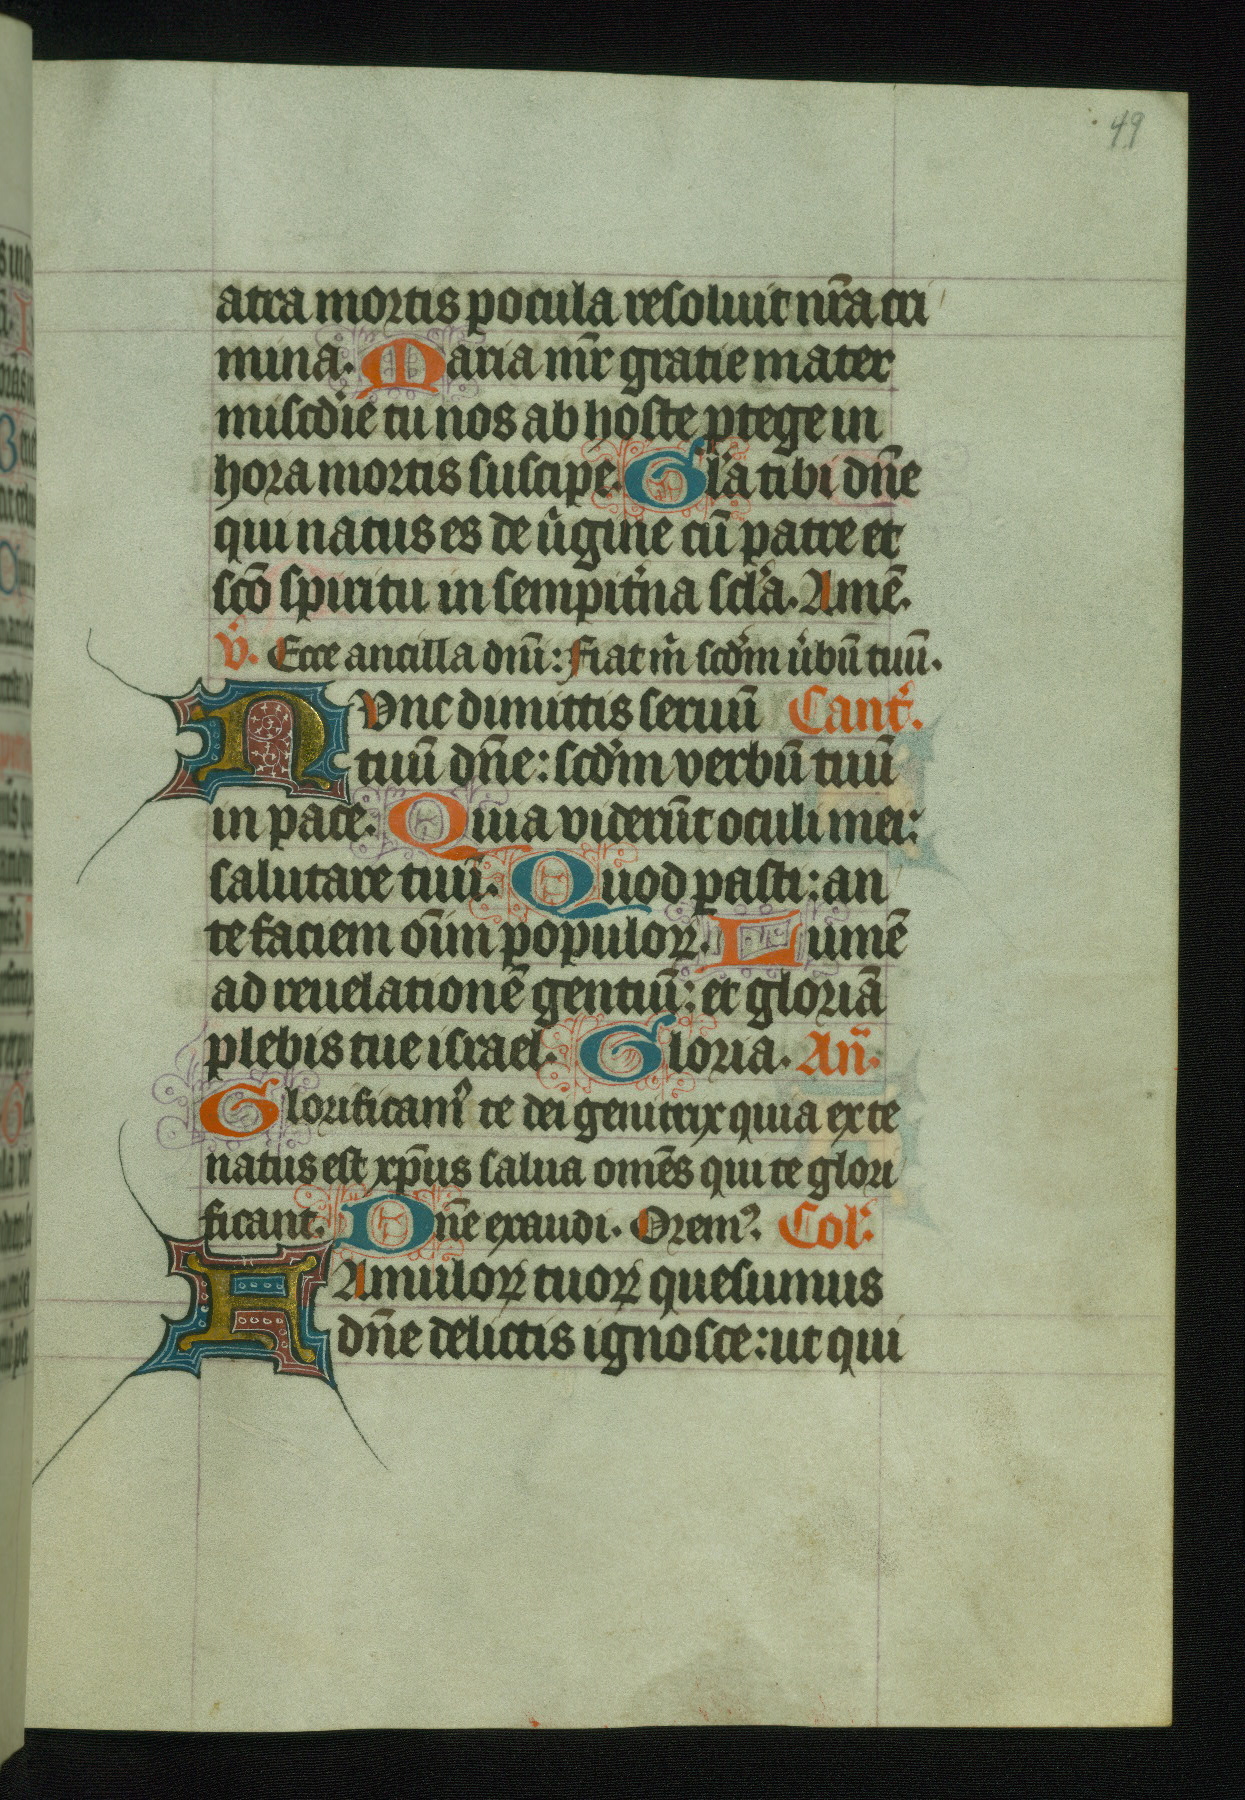 49
atra mortis pocula resoluit nr̄a cri
mina. Maria mr̄ gratie mater
misc̄die tu nos ab hoste ꝑtege in
hora mortis suscipe. Gl̄a tibi dn̄e
qui natus es de ṽgine cū patre et
sc̄o spiritu in sempit̃na scl̄a. Amē.
v̄. Ecce ancilla dn̄i: fiat m̄ scd̄m ṽbū tuū.
NVnc dimittis seruū Cant̃.
tuū dn̄e: scd̄m verbū tuū
in pace. Quia viderūt oculi mei:
salutare tuū. Quod pasti: an
te faciem oīm populoꝝ. Lumē
ad reuelationē gentiū: et gloriā
plebis tue israel. Gloria. An̄.
Glorificam᷒ te dei genitrix quia ex te
natus est xp̄us salua omēs qui te glori
ficant. Dn̄e exaudi. Orem᷒. Col̃.
FAmuloꝝ tuoꝝ quesumus
dn̄e delictis ignosce: ut qui